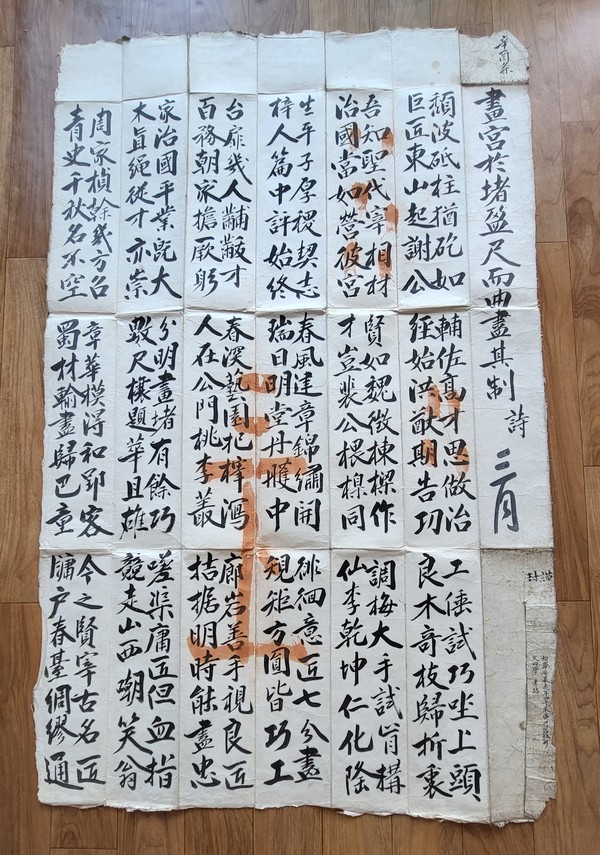 辛酉
畫宮於堵盈尺而曲盡其制 詩
頹波砥柱猶矻如
巨匠東山起謝公
輔佐高才思做治
經始洪猷期告功
工倕試巧坐上頭
良木奇枝歸折衷
吾知聖代宰相材
治國當如營彼宮
賢如魏徵棟樑作
才豈裴公椳闑同
調梅大手試肯構
仙李乾坤仁化隆
生平子厚稷契志
梓人篇中評始終
春風建章錦繡開
瑞日明堂丹雘中
徘徊意匠七分畫
規矩方圓皆巧工
台扉幾人黼黻才
百務朝家擔厥躬
春深藝園杞梓瀉
人在公門桃李叢
廊岩善手視良匠
拮据明時能盡忠
家治國平業旣大
木直繩從才亦崇
分明畫堵有餘巧
數尺榱題華且雄
嗟渠庸匠但血指
競走山西嘲笑翁
周家楨幹幾方召
靑史千秋名不空
章華模得和郢客
蜀材輸盡歸巴童
今之賢宰古名匠
牖戶春基綢繆通